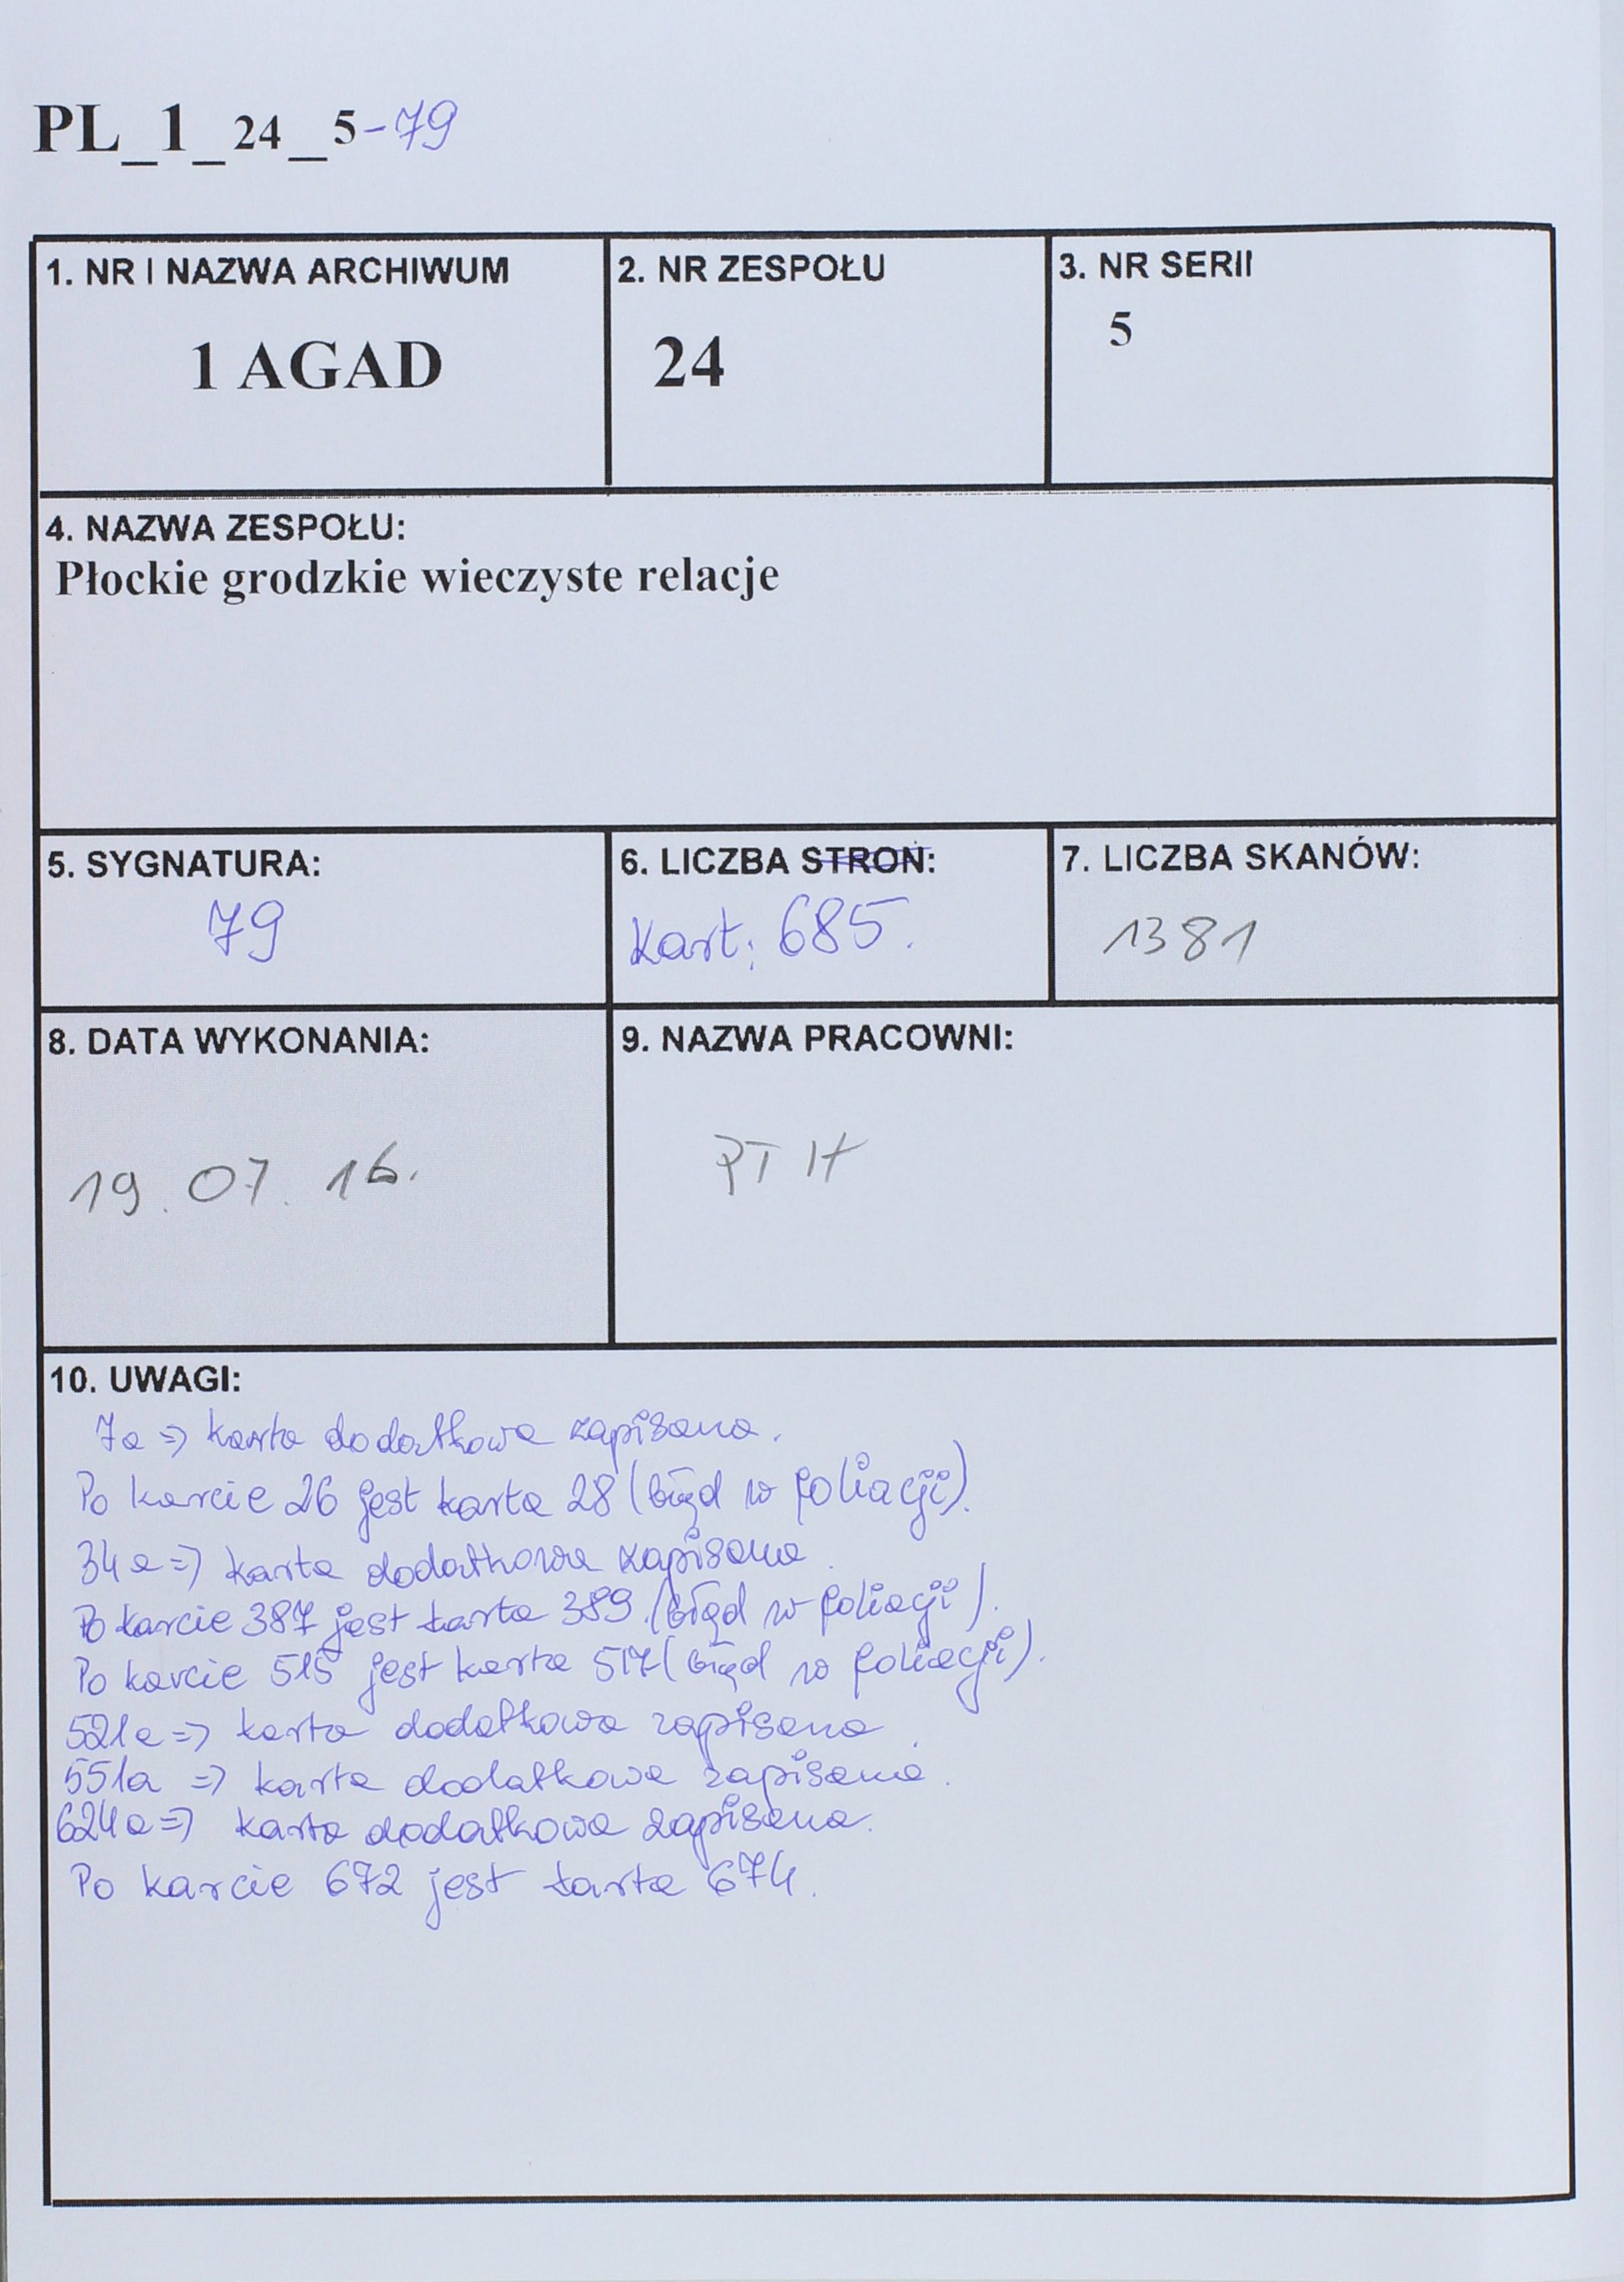 PL_1_24_5-79
1. NR I NAZWA ARCHIWUM
1 AGAD
2. NR ZESPOŁU
24
3. NR SERII
5
4. NAZWA ZESPOŁU:
Płockie grodzkie wieczyste relacje
5. SYGNATURA:
79
6. LICZBA STRON:
Kart: 685.
7. LICZBA SKANÓW:
1381
8. DATA WYKONANIA:
19.07.16.
9. NAZWA PRACOWNI:
PTH
10. UWAGI:
7a => karta dodatkowa zapisana.
Po karcie 26 jest karta 28 (błąd w foliacji).
34a => karta dodatkowa zapisana.
Po karcie 387 jest karta 389. (błąd w foliacji).
Po karcie 515 jest karta 517 (błąd w foliacji).
521a => karta dodatkowa zapisana.
551a => karta dodatkowa zapisana.
624a => karta dodatkowa zapisana.
Po karcie 672 jest karta 674.